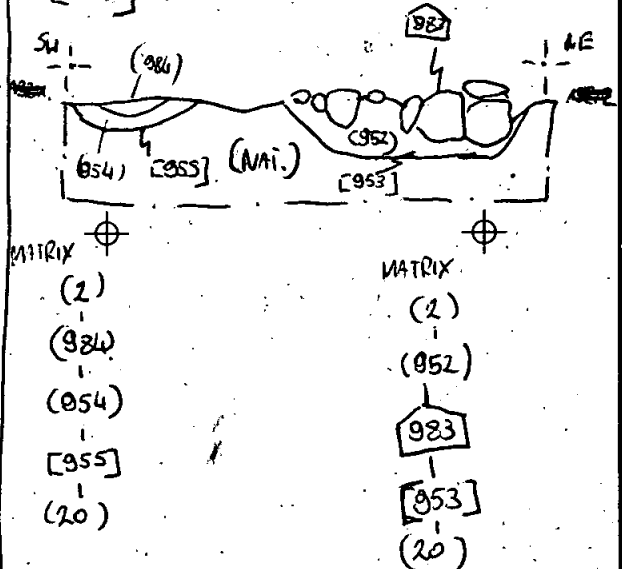 983
SW NE
(984)
(952)
(954) [955] (NAT.)
[953]
MATRIX
(2)
(984)
(954)
[955]
(20)
MATRIX
(2)
(952)
983
[953]
(20)